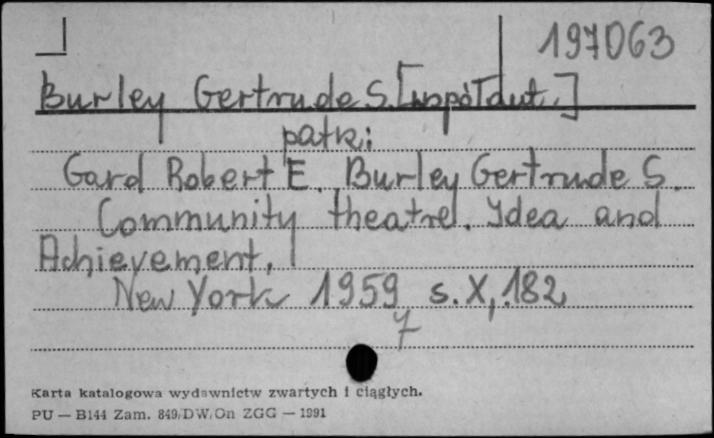 197063
Burley Gertrude S. [współaut.]
patrz:
Gard Robert E., Burley Gertrude S.
Community theatre. Idea and
Achievement.
New York 1959, s. X, 182
7
Karta katalogowa wydawnictw zwartych i ciągłych.
PU — B144 Zam. 849/DW/On ZGG — 1991